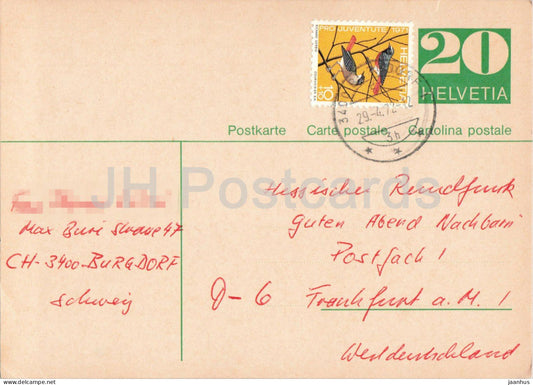 PRO JUVENTUTE 1971
HELVETIA
10
20
HELVETIA
3400
29.-4.72.-12
3h
Postkarte Carte postale Cartolina postale
JH Postcards
Max Buri Strasse 47
CH-3400-BURGDORF
Schweiz
Hessischer Rundfunk
Guten Abend Nachbarn
Postfach 1
D-6 Frankfurt a.M. 1
Westdeutschland
eu.jaanhus.com